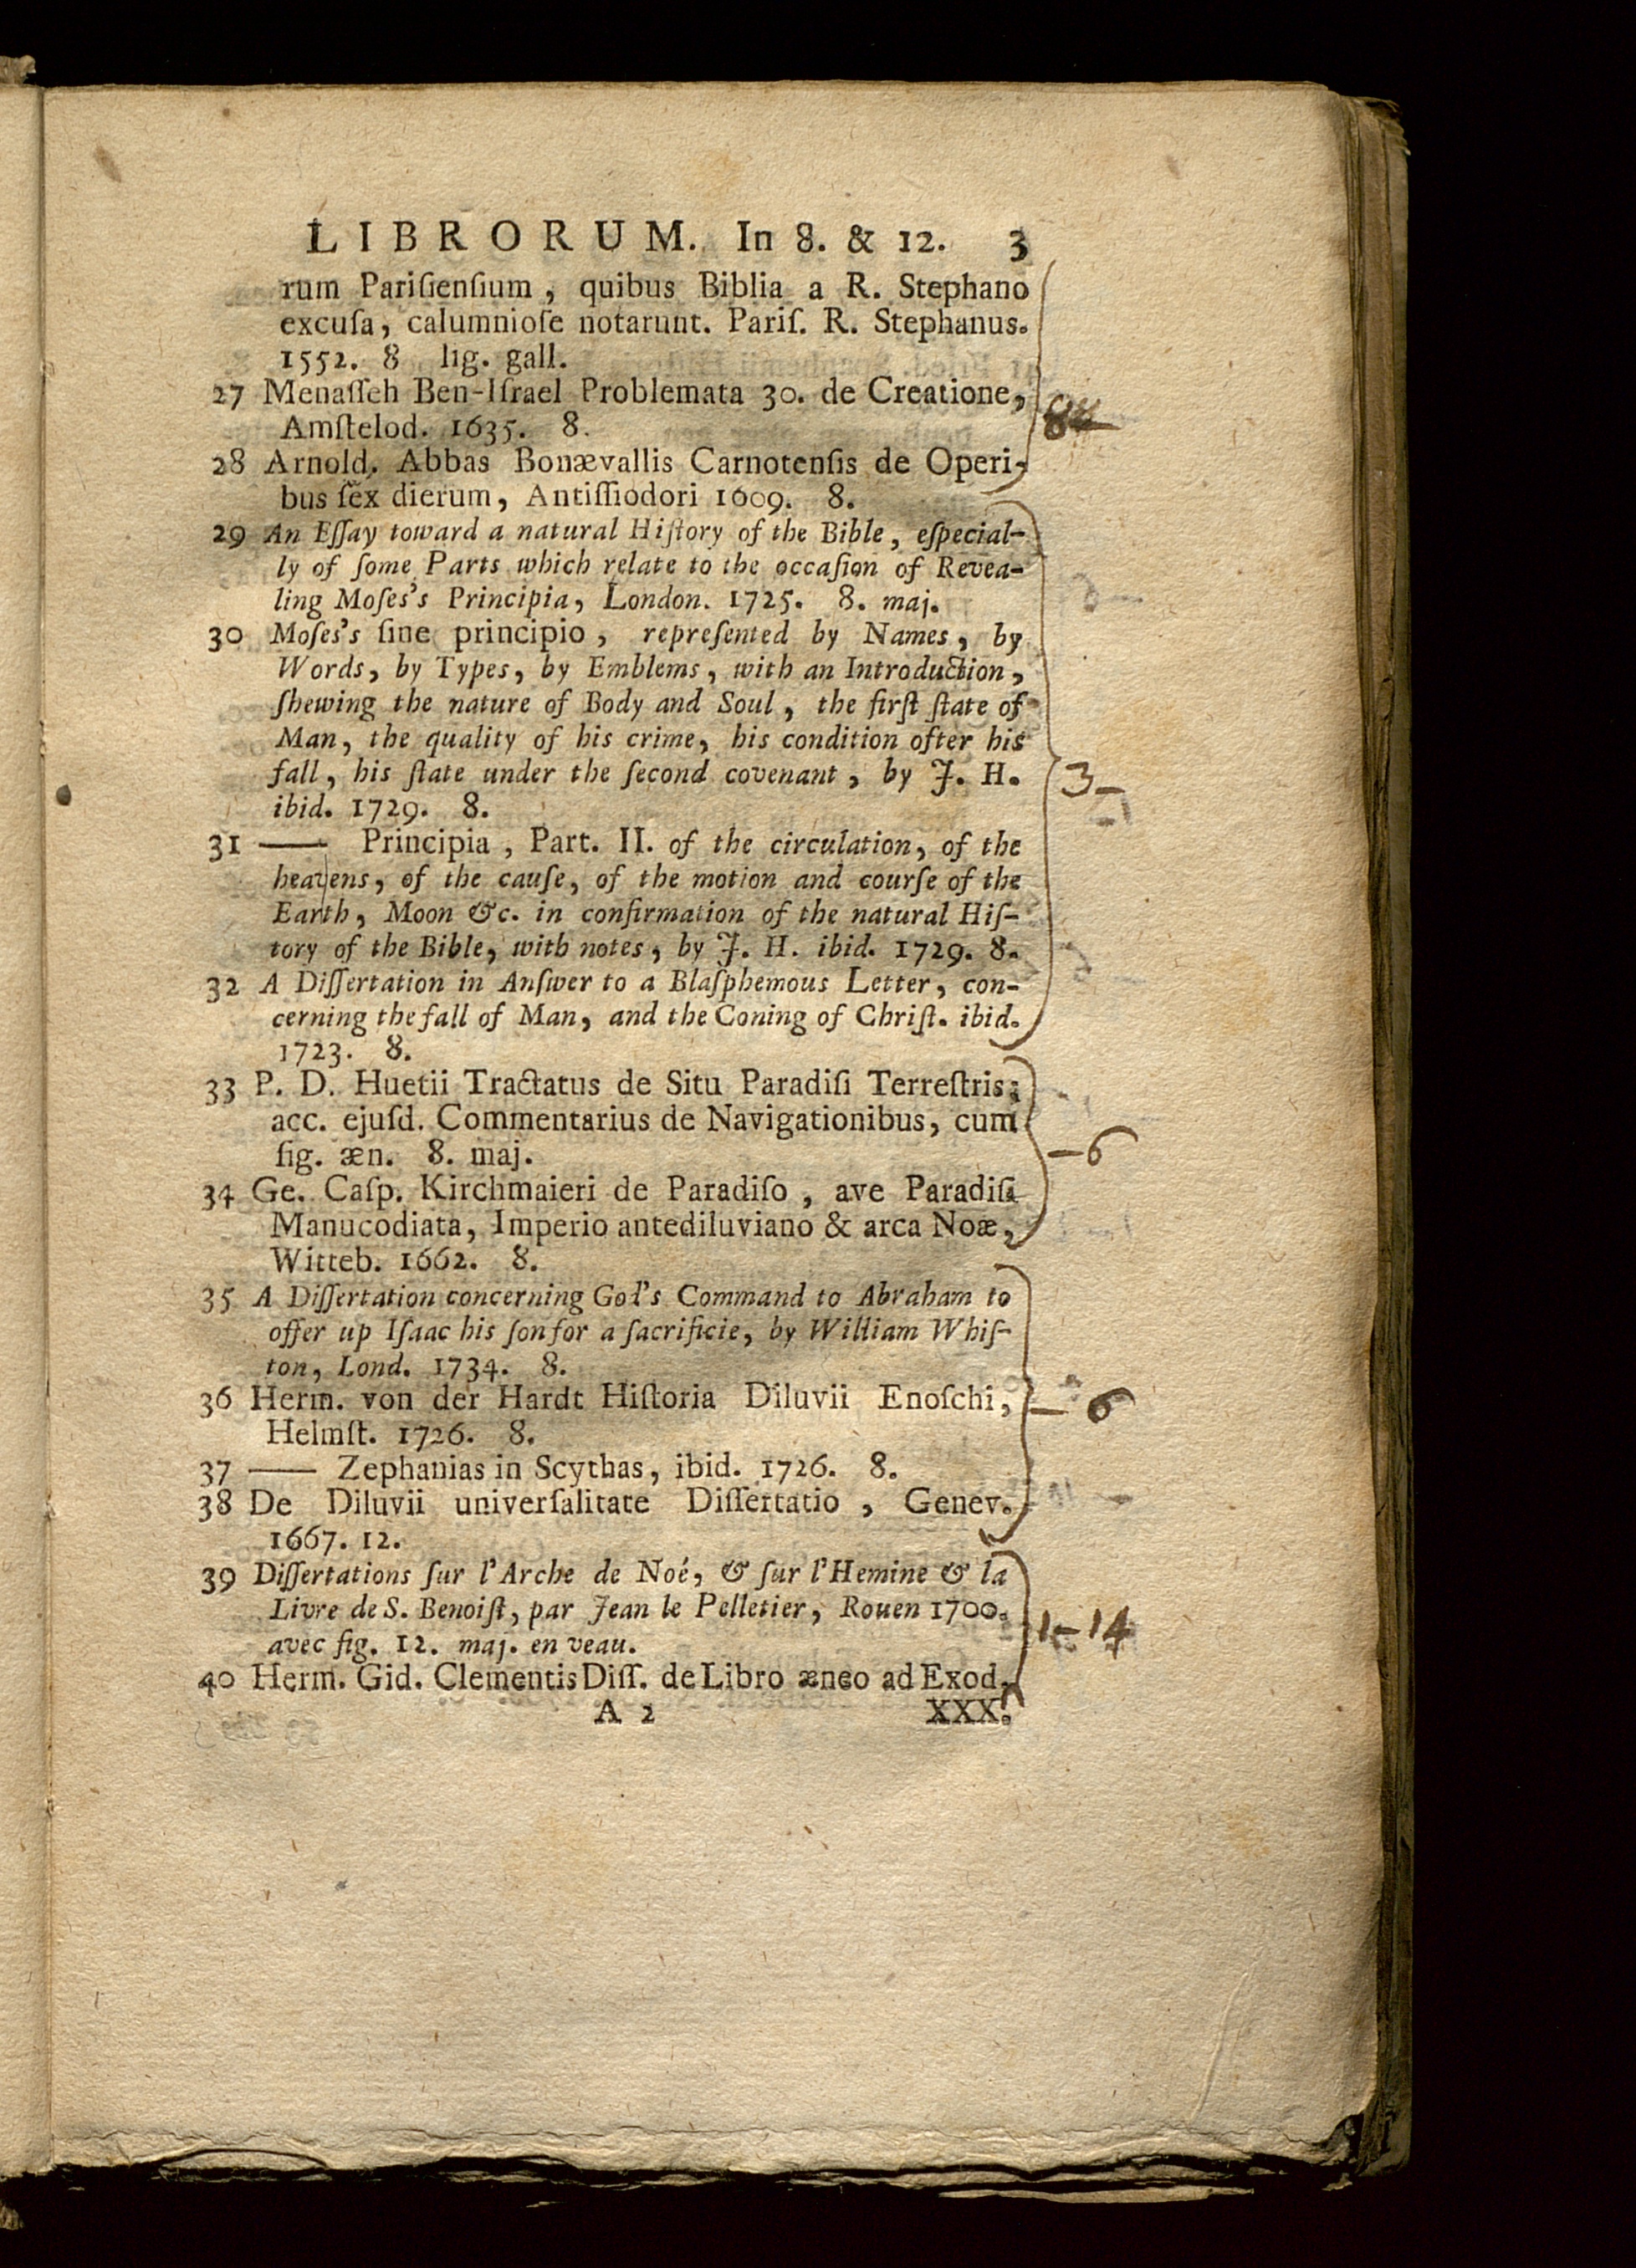 LIBRORUM. In 8. & 12. 3
rum Pariſienſium, quibus Biblia a R. Stephano
excuſa, calumnioſe notarunt. Pariſ. R. Stephanus.
1552. 8 lig. gall.
27 Menaſſeh Ben-Iſrael Problemata 30. de Creatione,
Amſtelod. 1635. 8.
28 Arnold. Abbas Bonævallis Carnotenſis de Operi-
bus ſex dierum, Antiſſiodori 1609. 8.
29 An Eſſay toward a natural Hiſtory of the Bible, eſpecial-
ly of ſome Parts which relate to the occaſion of Revea-
ling Moſes's Principia, London. 1725. 8. maj.
30 Moſes's ſine principio, repreſented by Names, by
Words, by Types, by Emblems, with an Introduction,
ſhewing the nature of Body and Soul, the firſt ſtate of
Man, the quality of his crime, his condition ofter his
fall, his ſtate under the ſecond covenant, by J. H.
ibid. 1729. 8.
3-
31 —— Principia, Part. II. of the circulation, of the
heavens, of the cauſe, of the motion and courſe of the
Earth, Moon &c. in confirmation of the natural Hiſ-
tory of the Bible, with notes, by J. H. ibid. 1729. 8.
32 A Diſſertation in Anſwer to a Blaſphemous Letter, con-
cerning the fall of Man, and the Coning of Chriſt. ibid.
1723. 8.
33 P. D. Huetii Tractatus de Situ Paradiſi Terreſtris;
acc. ejuſd. Commentarius de Navigationibus, cum
fig. æn. 8. maj.
-6
34 Ge. Caſp. Kirchmaieri de Paradiſo, ave Paradiſi
Manucodiata, Imperio antediluviano & arca Noæ,
Witteb. 1662. 8.
35 A Diſſertation concerning God's Command to Abraham to
offer up Iſaac his ſon for a ſacrificie, by William Whiſ-
ton, Lond. 1734. 8.
36 Herm. von der Hardt Hiſtoria Diluvii Enoſchi,
Helmſt. 1726. 8.
- 6
37 —— Zephanias in Scythas, ibid. 1726. 8.
38 De Diluvii univerſalitate Diſſertatio, Genev.
1667. 12.
39 Diſſertations ſur l'Arche de Noé, & ſur l'Hemine & la
Livre de S. Benoiſt, par Jean le Pelletier, Rouen 1700.
avec fig. 12. maj. en veau.
1-14
40 Herm. Gid. Clementis Diſſ. de Libro æneo ad Exod.
A 2 XXX.